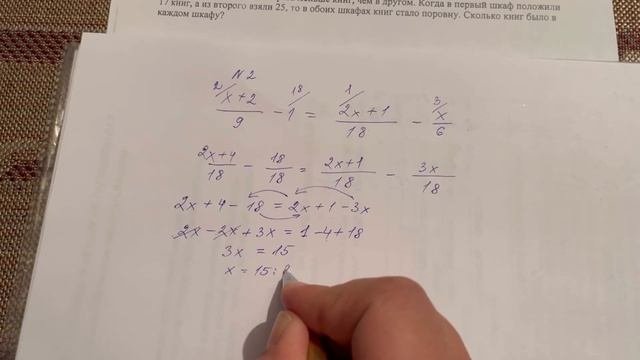 книг, чем в другом. Когда в первый шкаф положили
17 книг, а из второго взяли 25, то в обоих шкафах книг стало поровну. Сколько книг было в
каждом шкафу?
N2
2/ x+2 / 9 - 18/ 1 = 1/ 2x+1 / 18 - 3/ x / 6
2x+4 / 18 - 18 / 18 = 2x+1 / 18 - 3x / 18
2x+4-18=2x+1-3x
2x-2x+3x=1-4+18
3x=15
x=15: